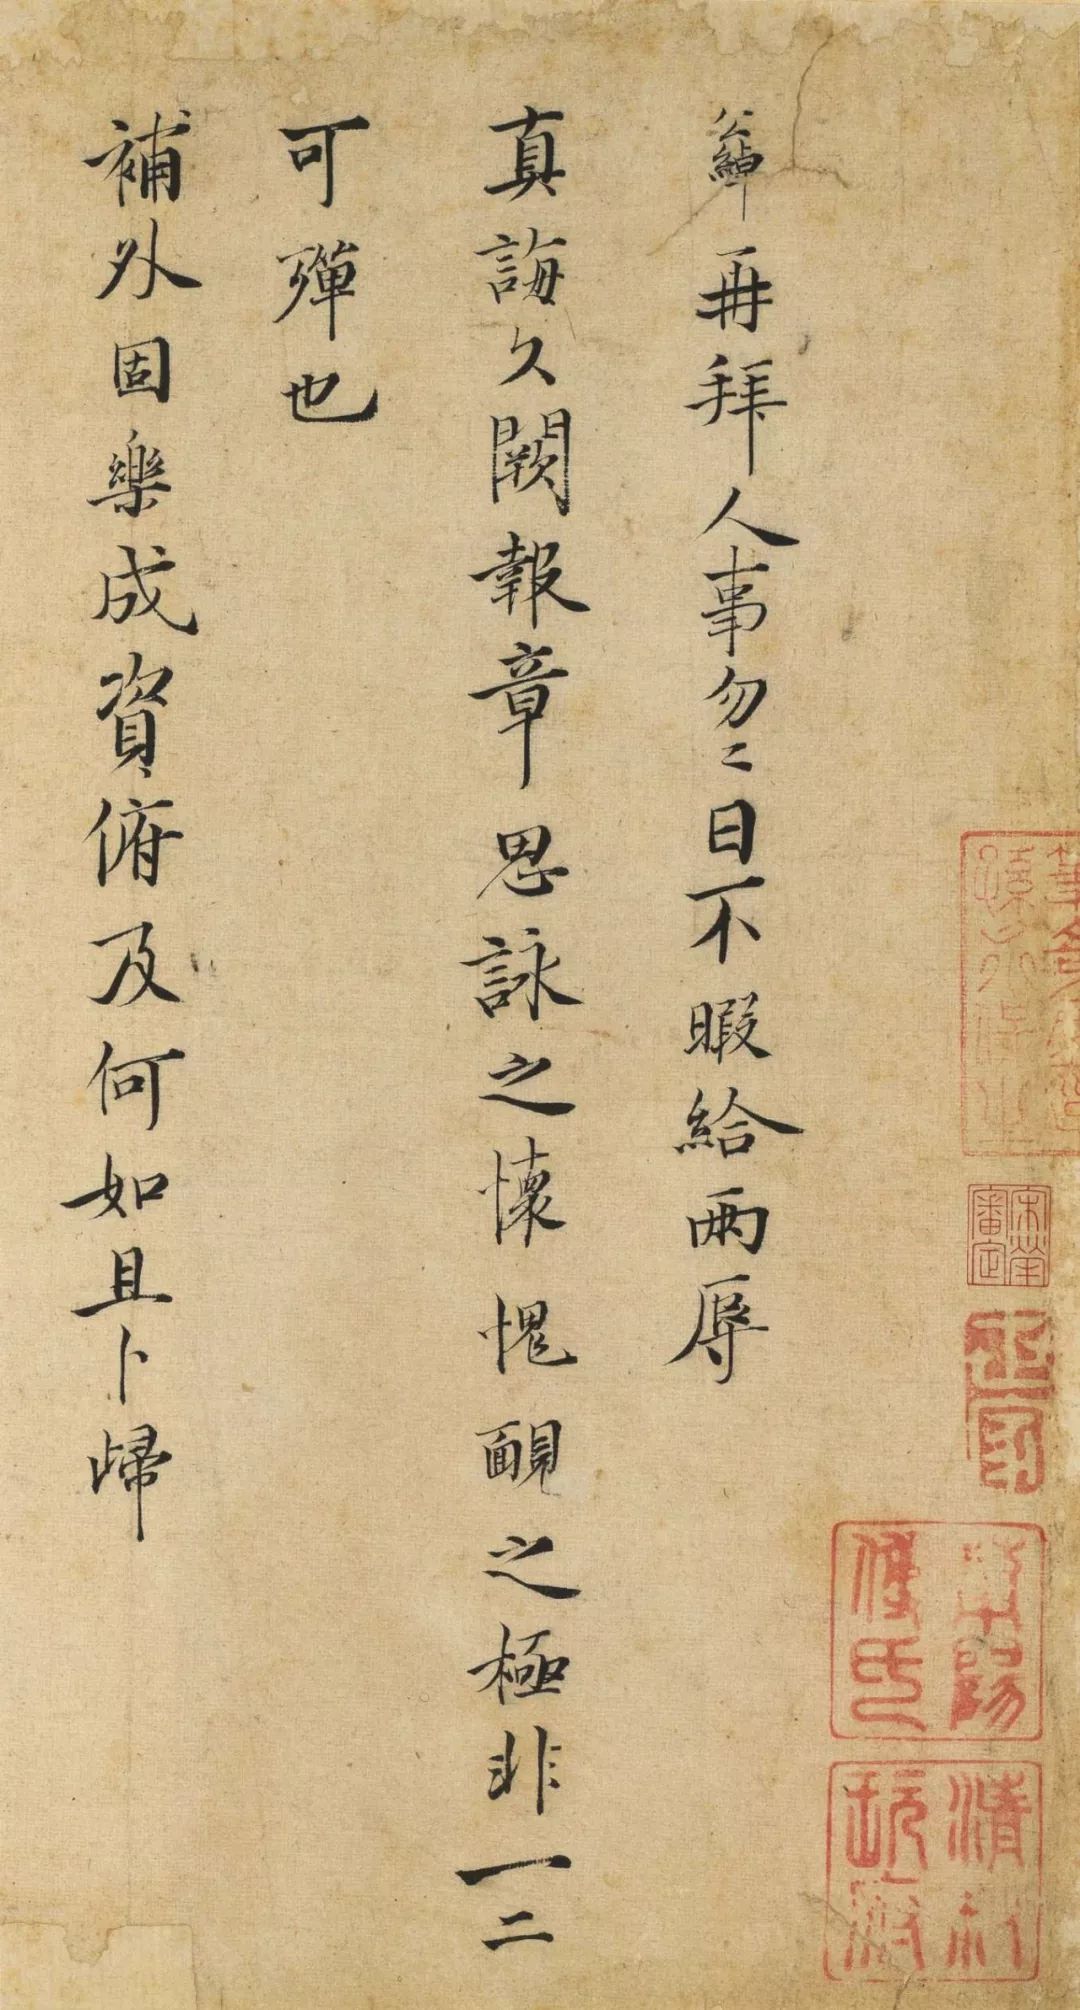 公綽再拜人事勿〻日不暇給兩辱
真誨久闕報章思詠之懷愧靦之極非一二
可殫也
補外固樂成資俯及何如且卜歸
宋犖審定